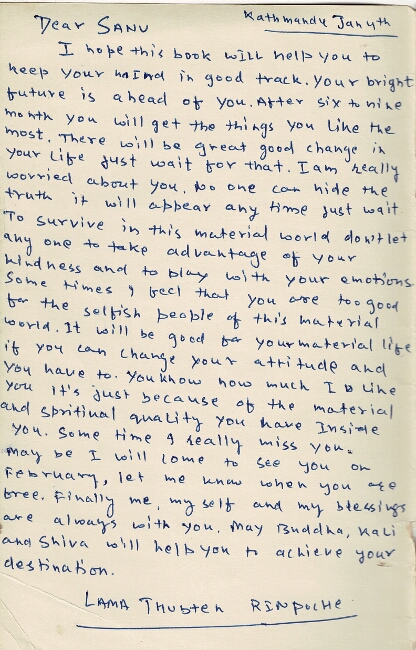 Kathmandu Jan 4th
Dear SANU
I hope this book will help you to
keep your mind in good track. Your bright
future is ahead of you. After six to nine
month you will get the things you like the
most. There will be great good change in
your life just wait for that. I am really
worried about you. No one can hide the
truth it will appear any time just wait
To survive in this material world don't let
any one to take advantage of your
kindness and to play with your emotions.
Some times I feel that you are too good
for the selfish people of this material
world. It will be good for your material life
if you can change your attitude and
you have to. You know how much I like
you it's just because of the material
and spritinal quality you have inside
you. Some time I really miss you.
may be I will come to see you on
February, let me know when you are
free. Finally me, my self and my blessings
are always with you. May Buddha, Kali
and Shiva will help you to achieve your
destination.
LAMA Thubten RINPOCHE